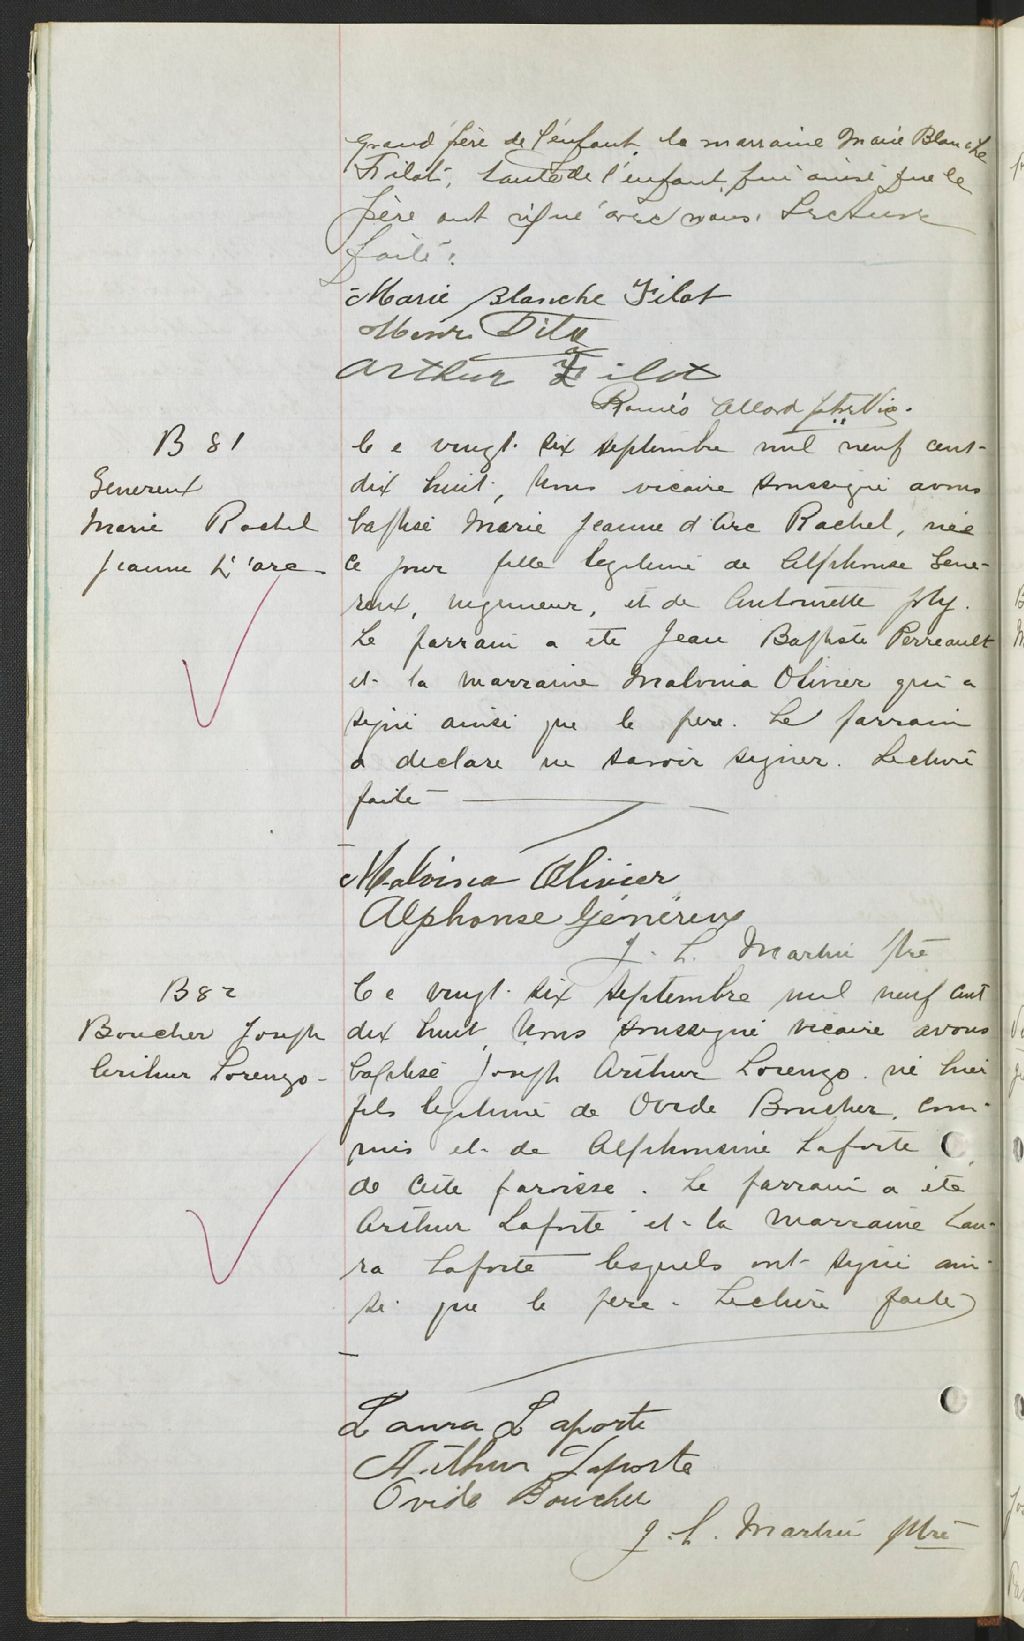 grand'père de l'enfant, la marraine Marie Blanche
Filat, tante de l'enfant, qui ainsi que le
père ont signé avec nous. Lecture
faite.
Marie Blanche Filat
Arthur Filat
Roméo Allard ptre Vic.
B 81
Genereux
Marie Rachel
Jeanne d'arc
Ce vingt-six septembre mil neuf cent-
dix huit, Nous vicaire soussigné avons
baptisé Marie Jeanne d'Arc Rachel, née
ce jour fille legitime de Alphonse Gene-
reux, ingenieur, et de Antoinette Joly.
Le parrain a ete Jean Baptiste Perreault
et la marraine Malvina Olivier qui a
signé ainsi que le pere. Le parrain
a declare ne savoir signer. Lecture
faite
Malvina Olivier
Alphonse Généreux
J. L. Martin ptre
B 82
Boucher Joseph
Arthur Lorenzo
Ce vingt-six septembre mil neuf cent
dix huit, Nous soussigné vicaire avons
baptisé Joseph Arthur Lorenzo né hier
fils legitime de Ovide Boucher, com-
mis et de Alphonsine Laporte
de cette paroisse. Le parrain a ete
Arthur Laporte et la marraine Lau-
ra Laporte lesquels ont signé ain-
si que le pere. Lecture faite
Laura Laporte
Arthur Laporte
Ovide Boucher
J. L. Martin ptre